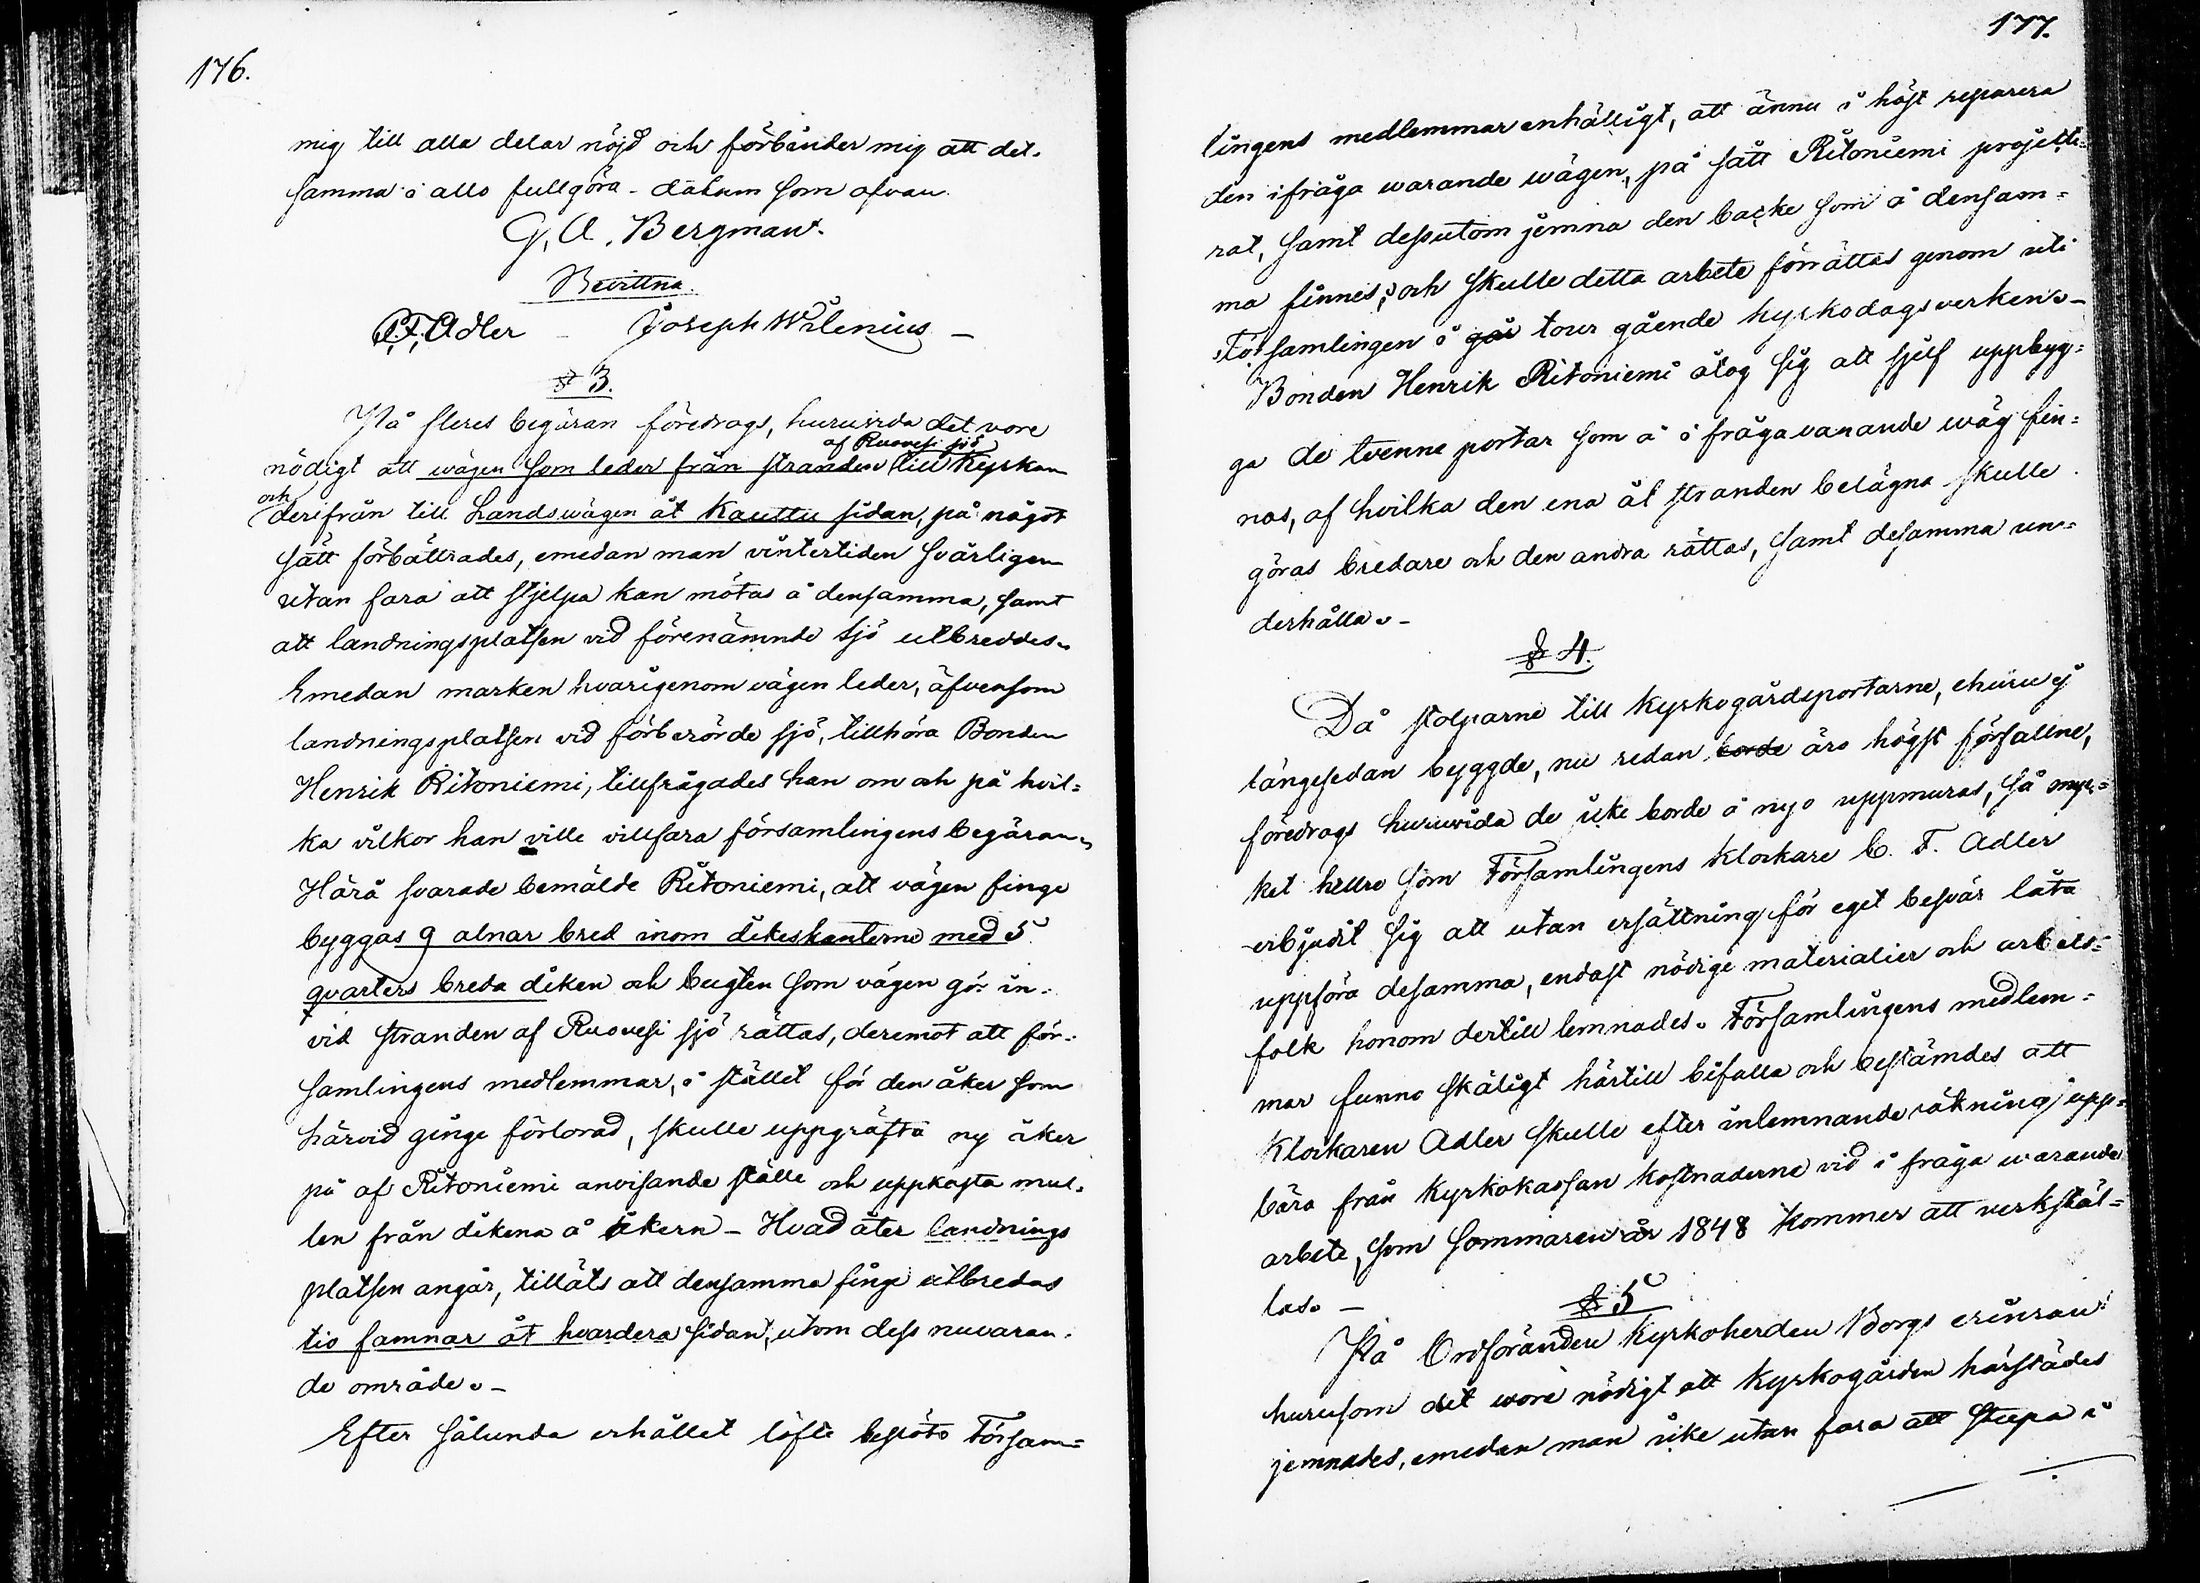 176.
mig till alla delar nöjd och förbinder mig att det-
samma i allo fullgöra - datum som ofvan.
G. A. Bergman.
Bevittna.
C. F. Adler - Joseph Wilenius -
§ 3.
På fleres begäran föredrogs, huruvida det vore
af Ruovesi sjö
nödigt att vägen som leder från stranden till Kyrkan
och
derifrån till Landsvägen åt Kauttu sidan, på något
sätt förbättrades, emedan man vintertiden svårligen
utan fara att stjelpa kan mötas å densamma, samt
att landningsplatsen vid förenämnde sjö utbreddes.
Emedan marken hvarigenom vägen leder, äfvensom
landningsplatsen vid förberörde sjö, tillhöra Bonden
Henrik Ritoniemi, tillfrågades han om och på hvil=
ka vilkor han ville villfara församlingens begäran.
Härå svarade bemälde Ritoniemi, att vägen finge
byggas 9 alnar bred inom dikeskanterne med 5
qvarters breda diken och bugten som vägen gör in-
vid stranden af Ruovesi sjö rättas, deremot att för-
samlingens medlemmar, i stället för den åker som
härvid ginge förlorad, skulle uppgräfta ny åker
på af Ritoniemi anvisande ställe och uppkasta mul-
len från dikena å åkern - Hvad åter landnings
platsen angår, tilläts att densamma finge utbredas
tio famnar åt hvardera sidan, utom dess nuvaran-
de område. -
Efter sålunda erhållet löfte beslöto Försam=
177.
lingens medlemmar enhälligt, att ännu i höst reparera
den ifråga warande wägen, på sätt Ritoniemi projekte=
rat, samt dessutom jemna den backe som å densam=
ma finnes; och skulle detta arbete förrättas genom uti
Församlingen i går tour gående kyrkodagsverken. -
Bonden Henrik Ritoniemi åtog sig att sjelf uppbyg=
ga de tvenne portar som å i fråga varande wäg fin=
nas, af hvilka den ena åt stranden belägna skulle
göras bredare och den andra rättas, samt desamma un=
derhålla. -
§ 4.
Då stolparne till Kyrkogårdsportarne, ehuru ej
längesedan byggde, nu redan borde äro högst förfallne,
föredrogs huruvida de icke borde å nyo uppmuras, så myc=
ket hellre som Församlingens Klockare C. F. Adler
erbjudit sig att utan ersättning för eget besvär låta
uppföra desamma, endast nödige materialier och arbets=
folk honom dertill lemnades. Församlingens medlem=
mar funno skäligt härtill bifalla och bestämdes att
Klockaren Adler skulle efter inlemnande räkning upp=
bära från Kyrkokassan kostnaderne vid i fråga warande
arbete, som sommaren år 1848 kommer att verkstäl=
las. -
§ 5
På Ordföranden Kyrkoherden Borgs erinran
hurusom det wore nödigt att Kyrkogården härstädes
jemnades, emedan man icke utan fara att stupa i